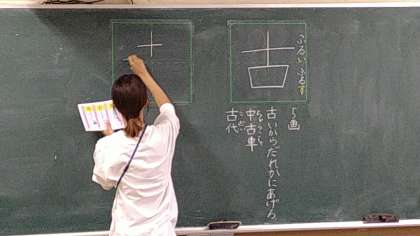 ふるい ふるす
古
5画
古いからだれかにあげる
中古車
古代
十